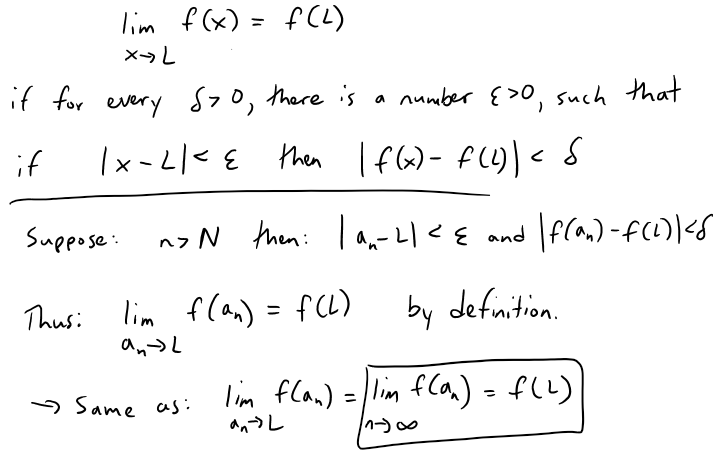 lim f(x) = f(L)
x→L
if for every δ>0, there is a number ε>0, such that
if |x-L|< ε then |f(x)- f(L)| < δ
Suppose: n>N then: |aₙ-L| < ε and |f(aₙ)-f(L)|<δ
Thus: lim f(aₙ) = f(L) by definition.
aₙ→L
→ Same as: lim f(aₙ) = lim f(aₙ) = f(L)
aₙ→L n→∞